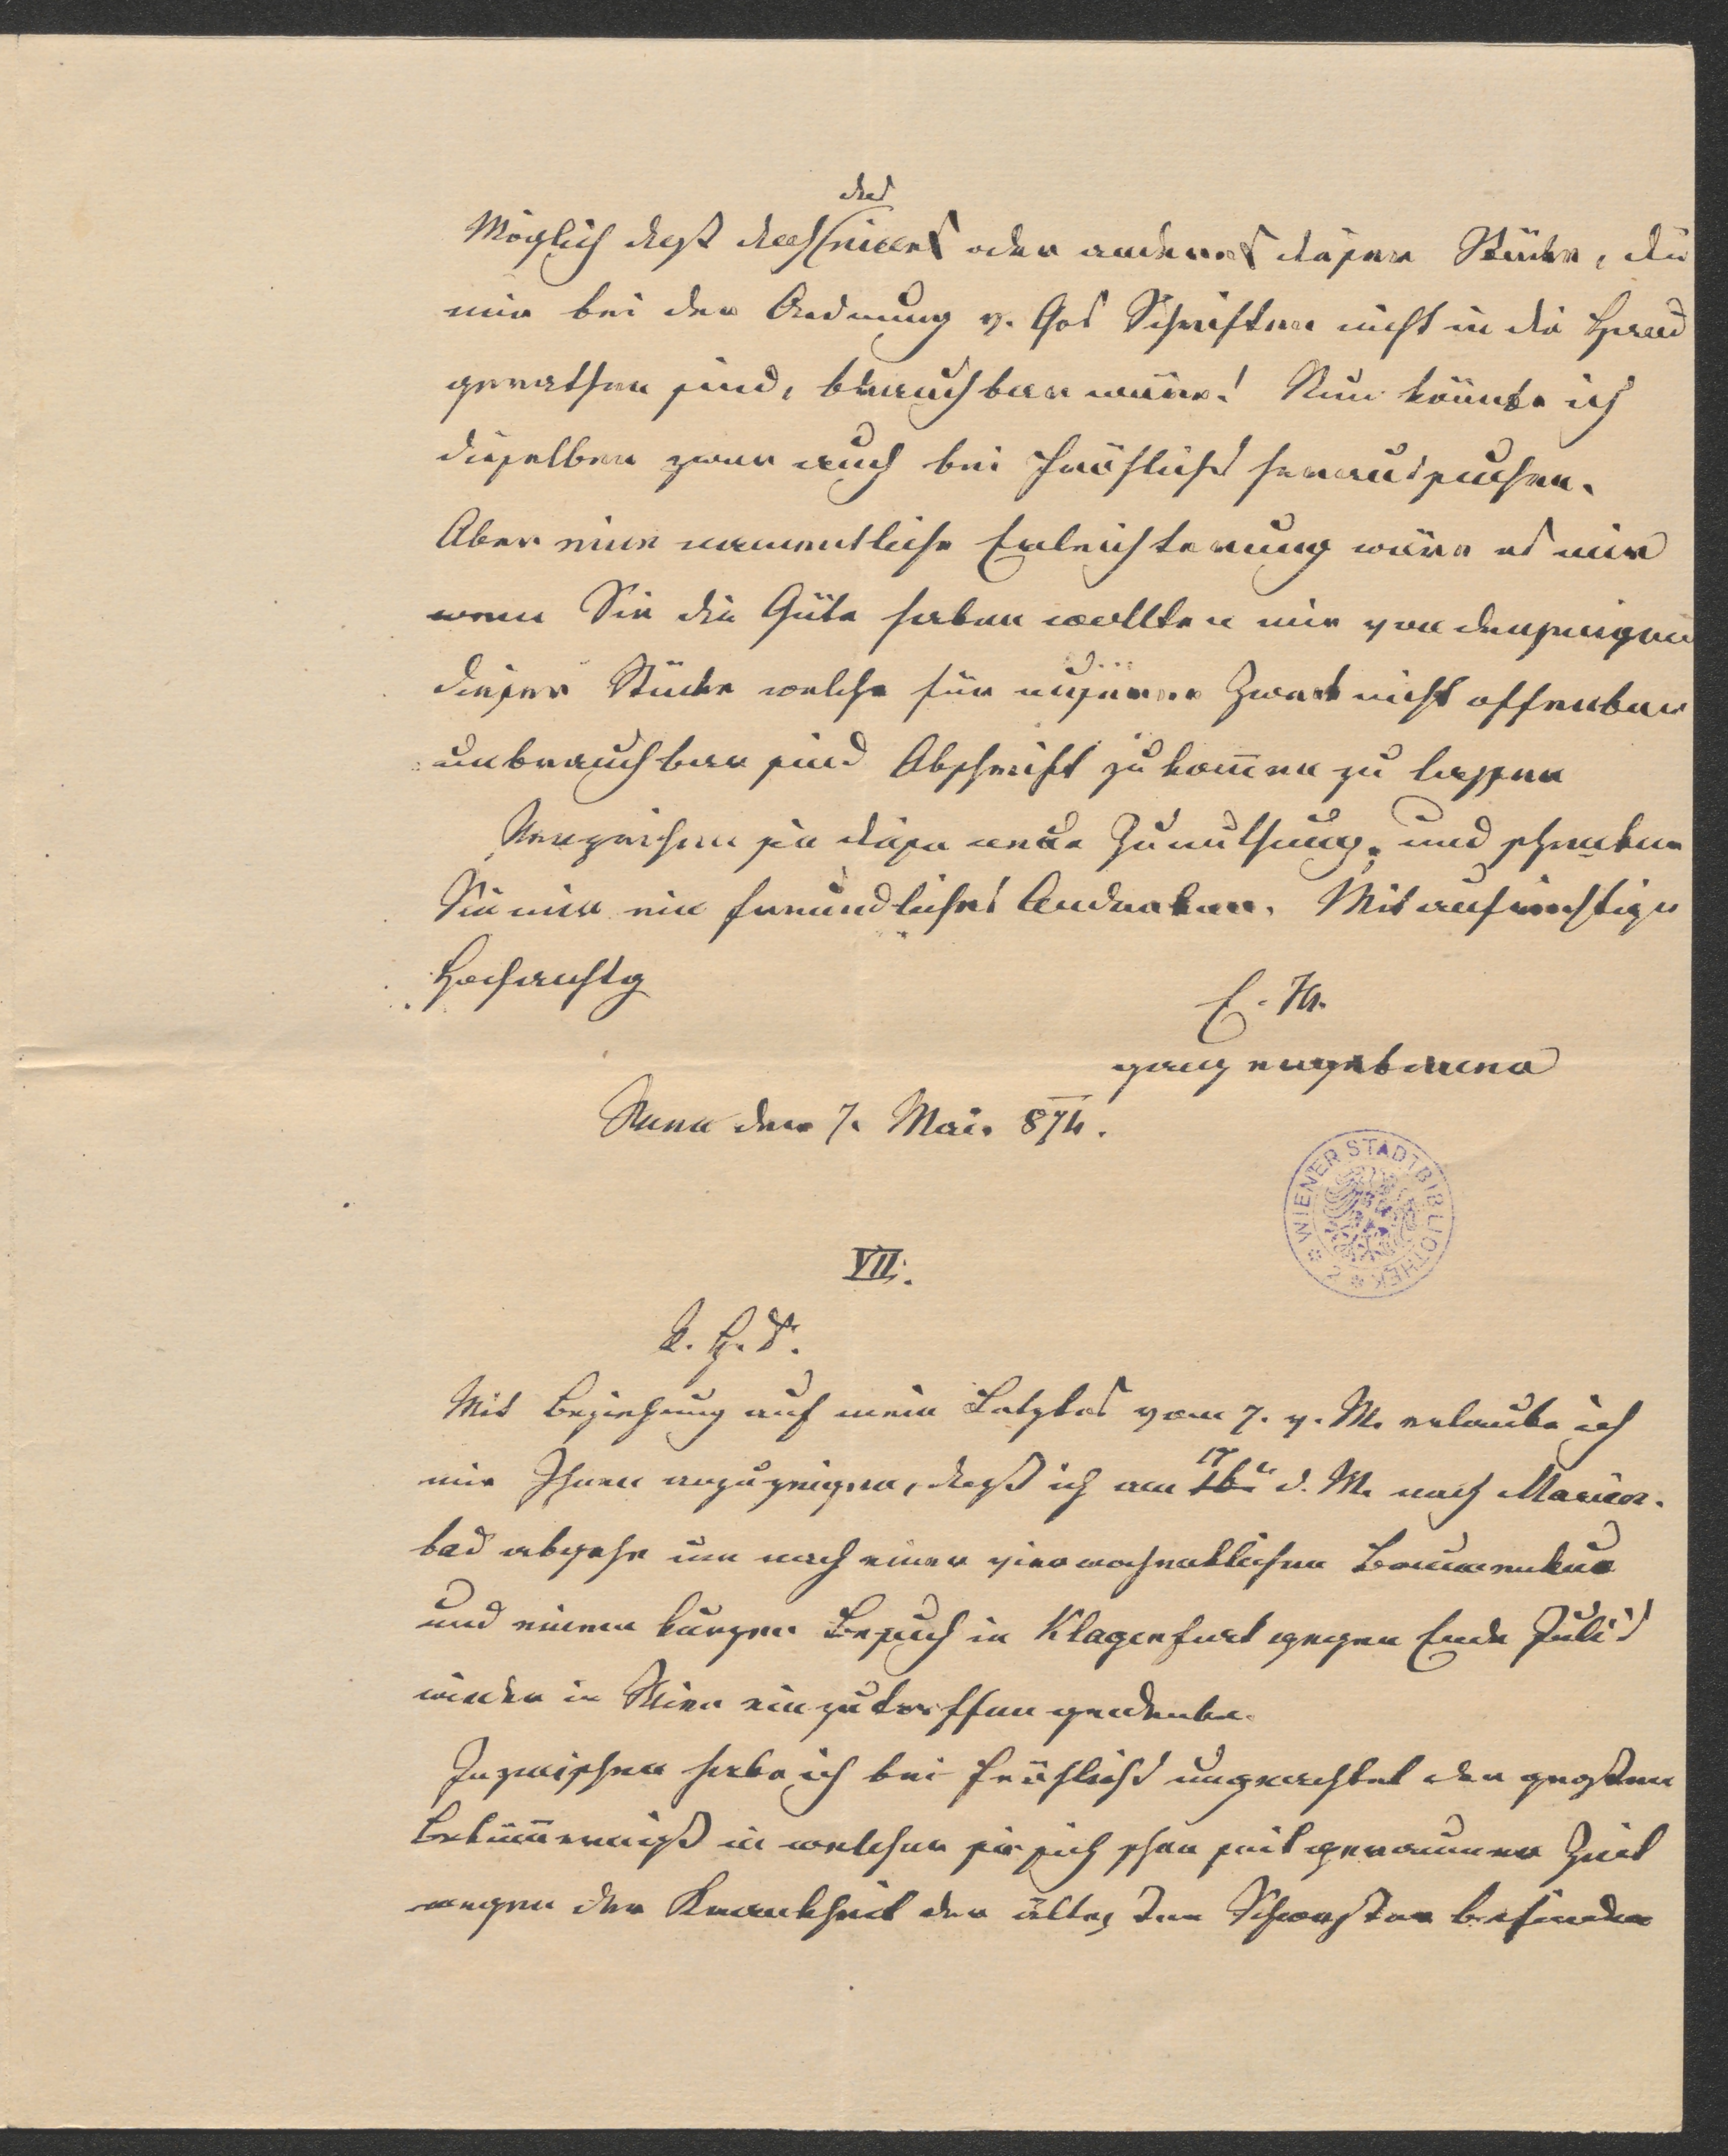 das
Möglich daß doch eines oder anderes dieser Stücke, die
mir bei der Ordnung v. Gos Schriften nicht in die Hand
gerathen sind, brauchbar wäre! Nun könnte ich
dieselben zwar auch bei Fröhlichs heraussuchen.
Aber eine namentliche Erleichterung wäre es mir
wenn Sie die Güte haben wollten mir von denjenigen
dieser Stücke welche für unseren Zweck nicht offenbar
unbrauchbar sind Abschrift zukom̅en zu lassen
Verzeihen sie diese neue Zumuthung, und schenken
Sie mir ein freundliches Andenken. Mit aufrichtiger
Hochachtg
E. H.
ganz ergebener
Wien den 7. Mai. 874.
WIENER STADTBIBLIOTHEK
VII.
V. H. D.
Mit Beziehung auf mein Letztes vom 7. v. M. erlaube ich
17
mir Ihnen anzuzeigen, daß ich am 16. d. M. nach Marien-
bad abgehe um nach einer vierwochentlichen Brunnenkur
und einem kurzen Besuch in Klagenfurt gegen Ende Juli's
wieder in Wien einzutreffen gedenke.
Inzwischen habe ich bei Fröhlichs ungeachtet der großen
Beküm̅erniß in welcher sie sich schon seit geraumer Zeit
wegen der Krankheit der ältesten Schwester befinden